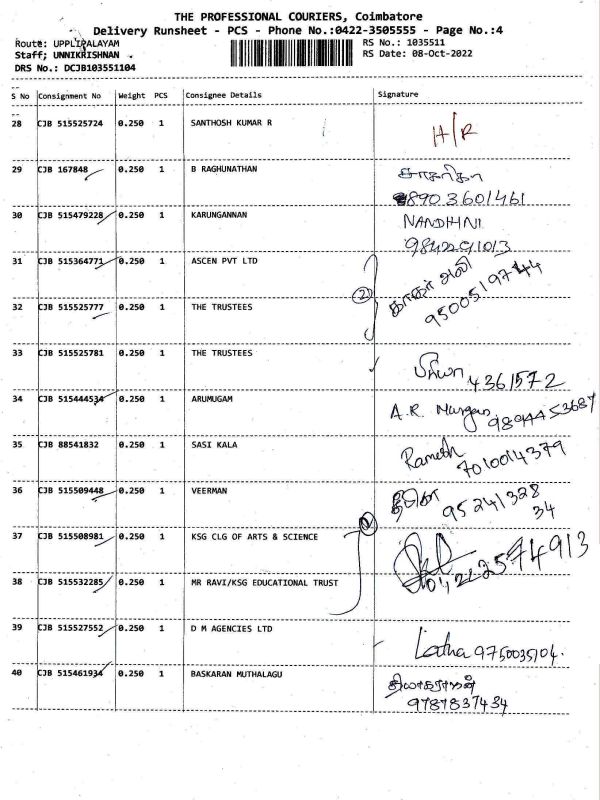 THE PROFESSIONAL COURIERS, Coimbatore
Delivery Runsheet - PCS - Phone No.:0422-3505555 - Page No.:4
Route: UPPLIPALAYAM RS No.: 1035511
Staff; UNNIKRISHNAN RS Date: 08-Oct-2022
DRS No.: DCJB103551104
S No Consignment No Weight PCS Consignee Details Signature
28 CJB 515525724 0.250 1 SANTHOSH KUMAR R H/R
29 CJB 167848 0.250 1 B RAGHUNATHAN
8903601461
30 CJB 515479228 0.250 1 KARUNGANNAN NANDHINI
31 CJB 515364771 0.250 1 ASCEN PVT LTD
2 காதர் அலி
9500519744
32 CJB 515525777 0.250 1 THE TRUSTEES
33 CJB 515525781 0.250 1 THE TRUSTEES பிரியா 4361572
34 CJB 515444534 0.250 1 ARUMUGAM A.R. Murgan
35 CJB 88541832 0.250 1 SASI KALA Ramesh 7010014379
36 CJB 515509448 0.250 1 VEERMAN
95241328
34
37 CJB 515508981 0.250 1 KSG CLG OF ARTS & SCIENCE
0422 2574913
38 CJB 515532285 0.250 1 MR RAVI/KSG EDUCATIONAL TRUST
39 CJB 515527552 0.250 1 D M AGENCIES LTD Latha 9750035104.
40 CJB 515461934 0.250 1 BASKARAN MUTHALAGU தியாகராஜன்
9787837434